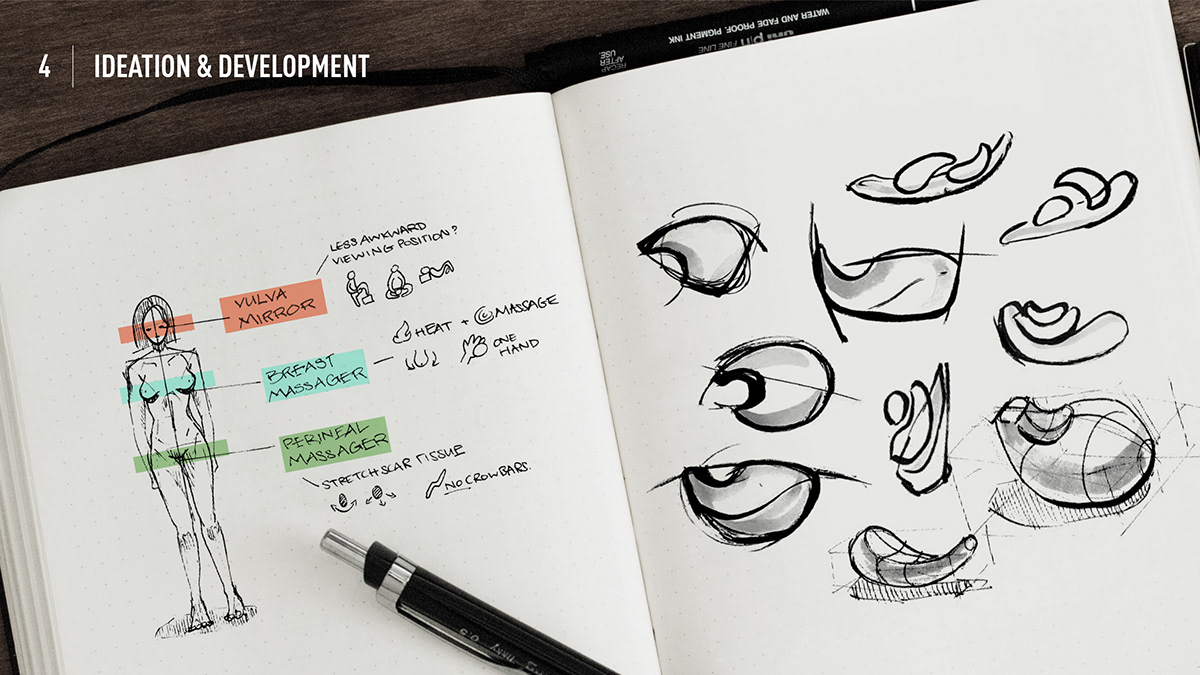 4 IDEATION & DEVELOPMENT
WATER AND FADE PROOF. PIGMENT INK
pin FINE LINE
RECAP
AFTER
USE.
LESS AWKWARD
VIEWING POSITION?
VULVA
MIRROR
HEAT + MASSAGE
ONE
HAND
BREAST
MASSAGER
PERINEAL
MASSAGER
STRETCH SCAR TISSUE
NO CROWBARS.
0.5